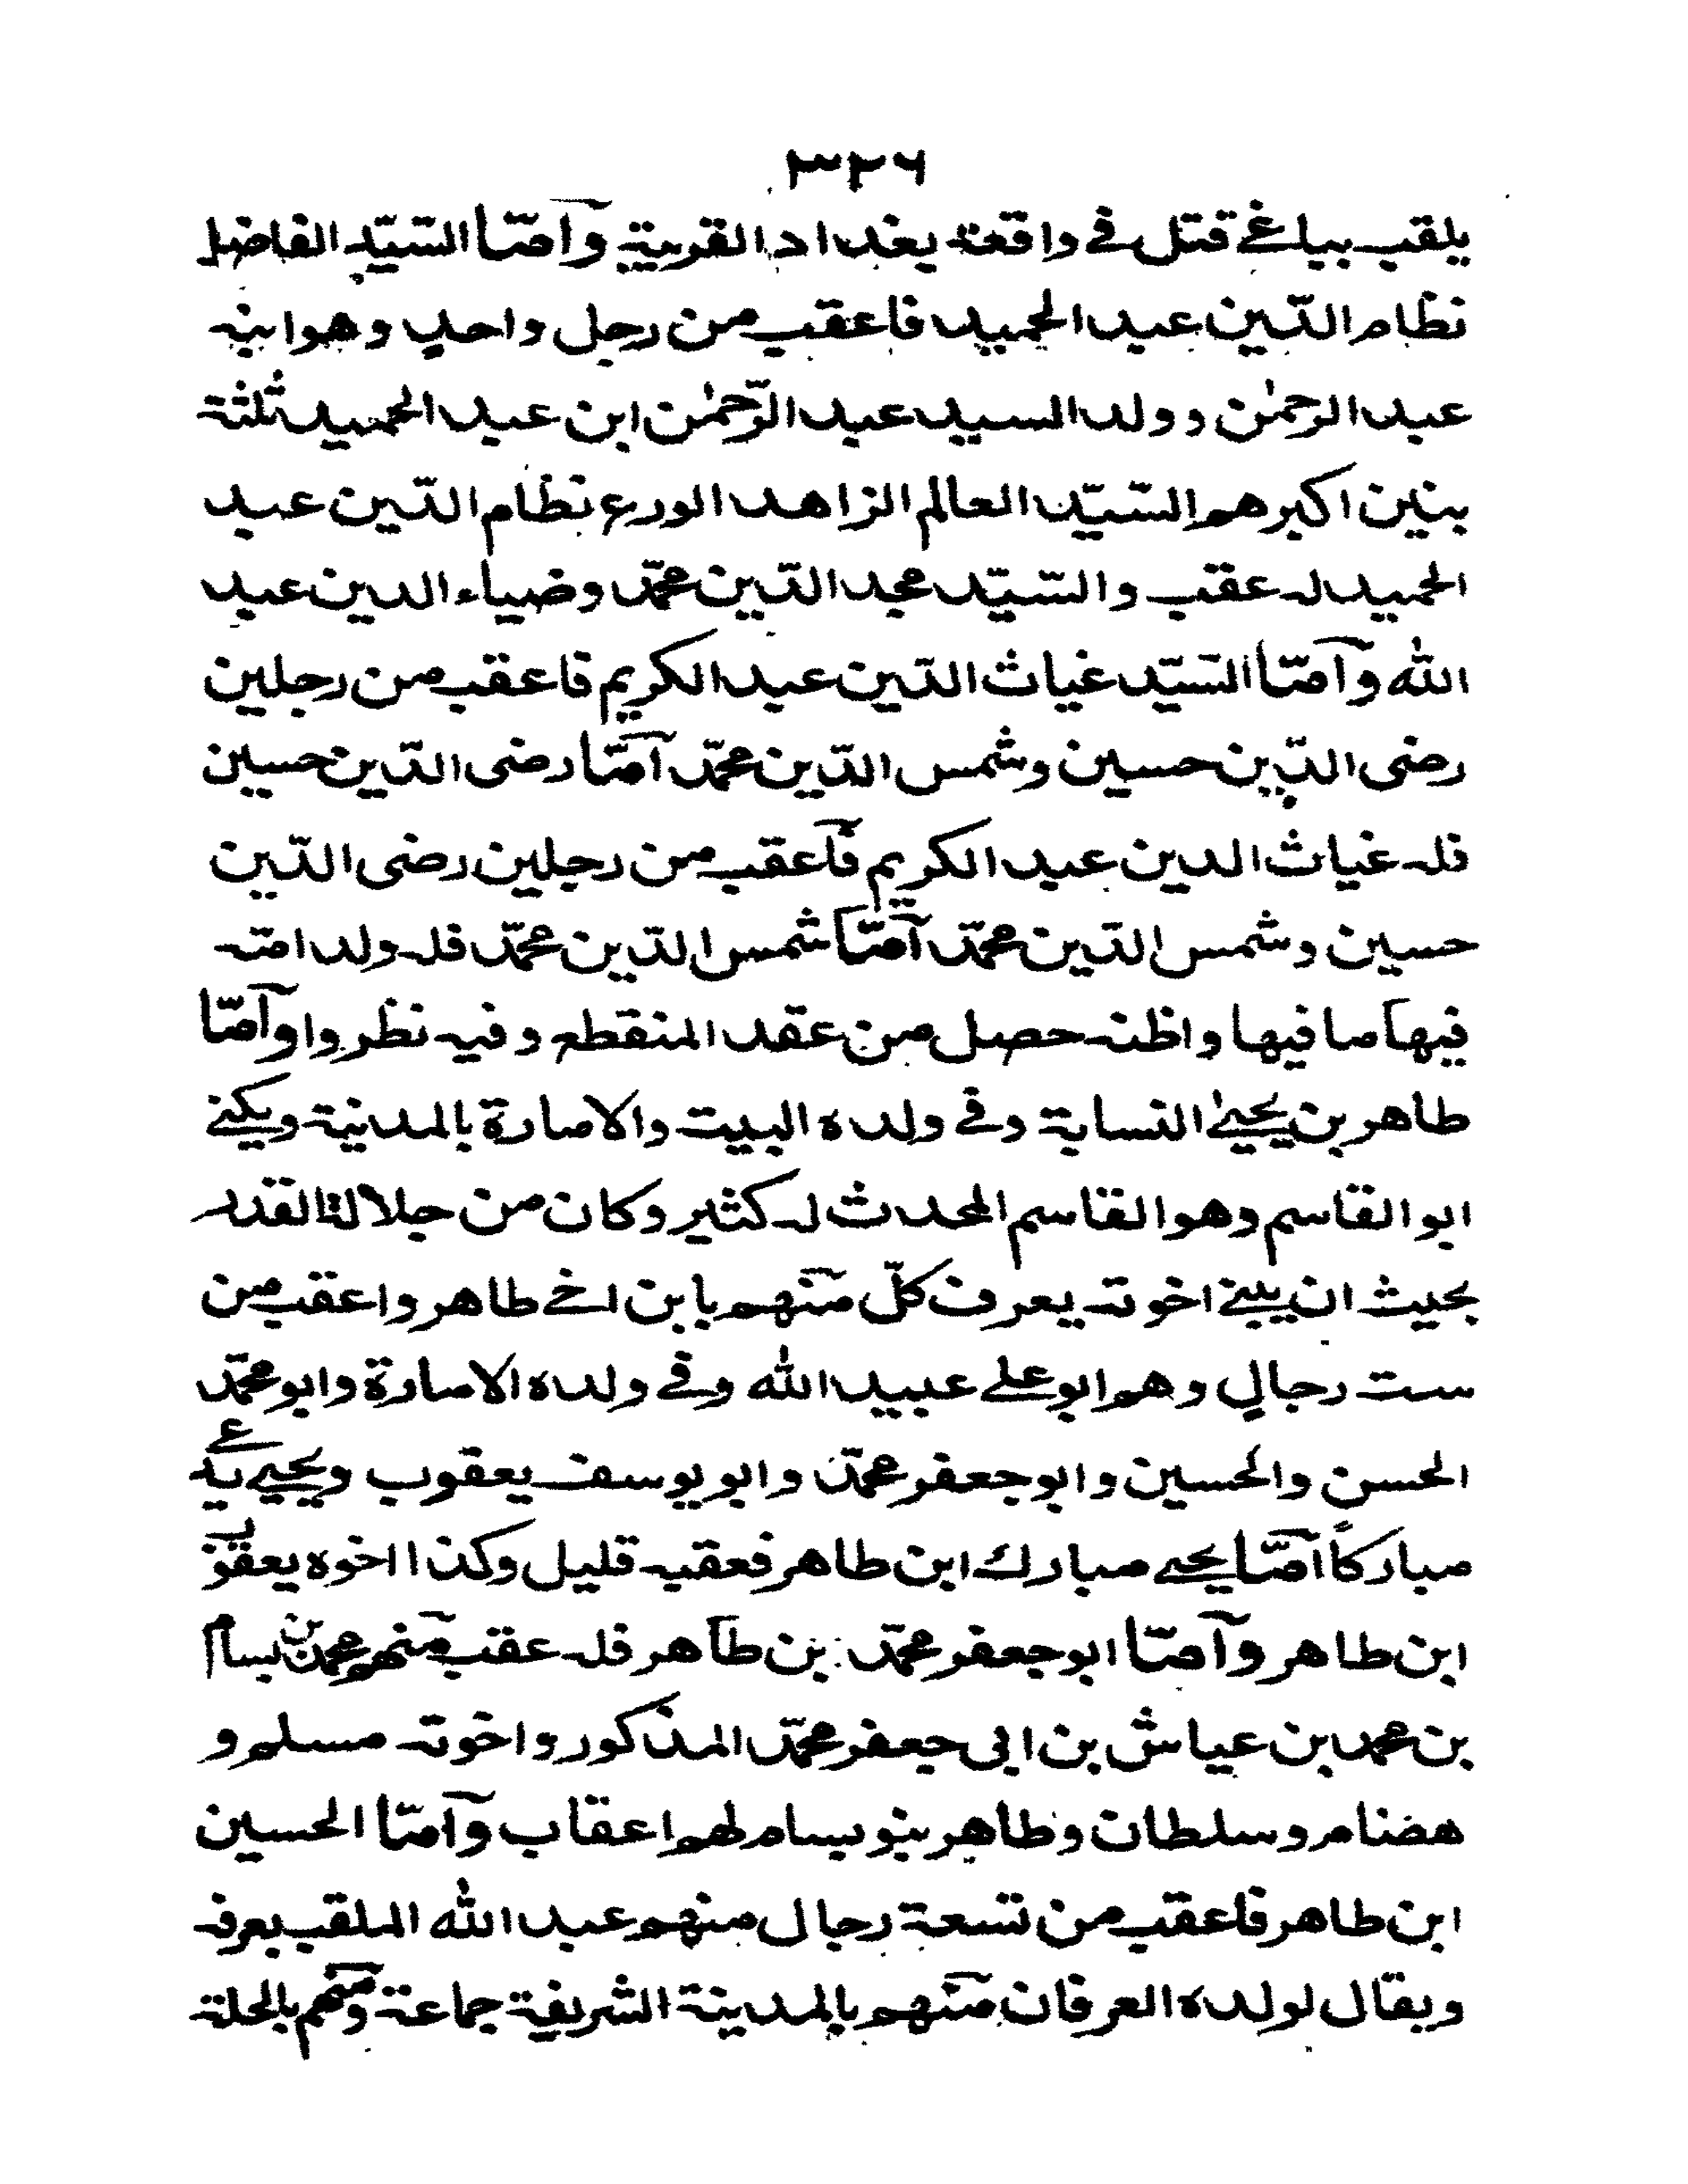 ٣٢٦
يلقب بياغي قتل في واقعة بغداد القريبة وأمّا السّيّد الفاضل
نظام الدّين عبد الحميد فاعقب من رجل واحد وهو ابنه
عبد الرحمٰن وولد السيد عبد الرّحمٰن ابن عبد الحميد ثلثة
بنين اكبرهم السّيّد العالم الزاهد الورع نظام الدّين عبد
الحميد له عقب والسّيّد مجد الدّين محمّد وضياء الدين عبد
الله وأمّا السّيّد غياث الدّين عبد الكريم فاعقب من رجلين
رضى الدّين حسين وشمس الدّين محمّد أمّا رضى الدّين حسين
فله غياث الدين عبد الكريم فأعقب من رجلين رضى الدّين
حسين وشمس الدّين محمّد أمّا شمس الدّين محمّد فله ولد امّه
فيها ما فيها واظنه حصل من عقد المنقطع وفيه نظر وا وأمّا
طاهر بن يحيىٰ النسابة وفي ولده البيت والامارة بالمدنية ويكنى
ابو القاسم وهو القاسم المحدث له كثير وكان من جلالة القدر
بحيث ان بيني اخوته يعرف كلّ منهم بابن اخي طاهر واعقب من
ست رجال وهم ابو علي عبيد الله وفي ولده الامارة وابو محمّد
الحسن والحسين وابو جعفر محمّد وابو يوسف يعقوب ويحيى يدعى
مباركاً أمّا يحيى مبارك ابن طاهر فعقبه قليل وكذا اخوه يعقوب
ابن طاهر وأمّا ابو جعفر محمّد بن طاهر فله عقب منهم محمد بن بسام
بن محمد بن عياش بن ابى جعفر محمّد المذكور واخوته مسلم و
هضام وسلطان وطاهر بنو بسام لهم اعقاب وأمّا الحسين
ابن طاهر فاعقب من تسعة رجال منهم عبد الله الملقب بعرفه
ويقال لولده العرفان منهم بالمدينة الشريفة جماعة ومنهم بالحلة